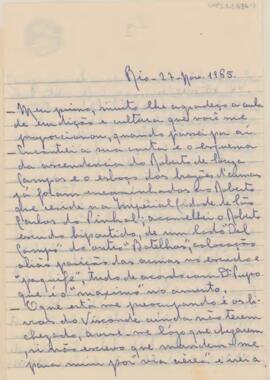 Rio - 27 - Nov. 1985.
- Meu primo, muito lhe agradeço a aula
de erudição e cultura que você me
proporcionou, quando passei por aí.
- Encontrei a nota com o esquema
da ascendencia do Roberto de
Campos e o esboço dos brazões d'armas
já foram encaminhados ao Alberto
que reside na Imperial Cidade de São
Carlos do Pinhal; aconselhei o Alberto
escudo bipartido, de um lado "Del
Campo" do outro "Botelhos", colocação
aliás posição das armas no escudo e
"paquife", tudo de acordo com
que é o "máximo" no assunto.
- O que está me preocupando é os li-
vros do Visconde ainda não terem
chegado, avise-me logo que chegarem,
 escrevo que mandem-me
para mim por "via aérea" e irei a